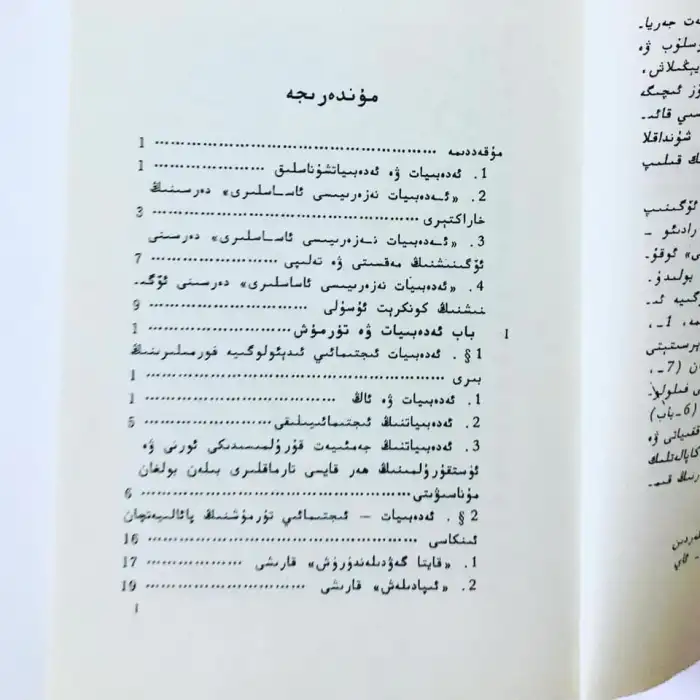 مۇندەرىجە
مۇقەددىمە ................................................ 1
1. ئەدەبىيات ۋە ئەدەبىياتشۇناسلىق .................... 1
2. «ئەدەبىيات نەزەرىيىسى ئاساسلىرى» دەرسىنىڭ
خاراكتېرى ................................................ 3
3. «ئەدەبىيات نەزەرىيىسى ئاساسلىرى» دەرسىنى
ئۆگىنىشنىڭ مەقسىتى ۋە تەلىپى ........................ 7
4. «ئەدەبىيات نەزەرىيىسى ئاساسلىرى» دەرسىنى ئۆگە-
نىشنىڭ كونكرېت ئۇسۇلى ............................ 9
I باب ئەدەبىيات ۋە تۇرمۇش ........................ 1
§1. ئەدەبىيات ئىجتىمائىي ئىدېئولوگىيە فورمىلىرىنىڭ
بىرى ................................................ 1
1. ئەدەبىيات ۋە ئاڭ ................................ 1
2. ئەدەبىياتنىڭ ئىجتىمائىيلىقى ........................ 5
3. ئەدەبىياتنىڭ جەمئىيەت قۇرۇلمىسىدىكى ئورنى ۋە
ئۈستقۇرۇلمىنىڭ ھەر قايسى تارماقلىرى بىلەن بولغان
مۇناسىۋىتى ............................................ 6
§2. ئەدەبىيات — ئىجتىمائىي تۇرمۇشنىڭ پائالىيەتچان
ئىنكاسى ............................................ 16
1. «قايتا گەۋدىلەندۈرۈش» قارىشى ................ 17
2. «ئىپادىلەش» قارىشى ........................ 19
1
ئۆگىنىپ
رادىئو —
ئوقۇ-
بولىدۇ.
(6-باب)
شۇنداقلا